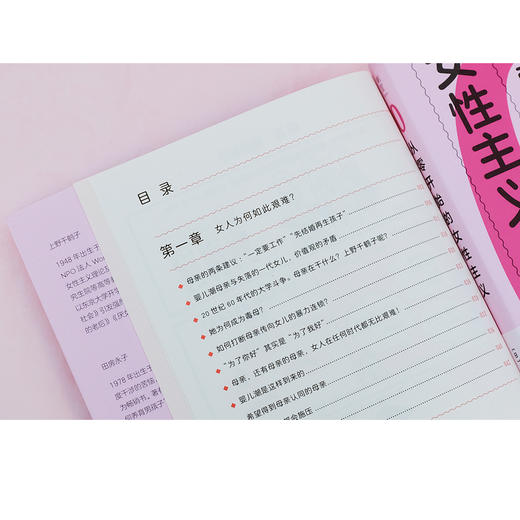 上野千鹤子
1948 年出生于
NPO 法人 Wor
女性主义理论及
究生院等高等
以东京大学开学
社会》引发强烈
的老后》《厌女
田房永子
1978 年出生于
度干涉的苦恼
为畅销书。著有
何养育男孩子
目 录
第一章 女人为何如此艰难？
母亲的两条建议：“一定要工作”“先结婚再生孩子”
婴儿潮母亲与失落的一代女儿，价值观的矛盾
20 世纪 60 年代的大学斗争。母亲在干什么？上野千鹤子呢？
她为何成为毒母？
如何打断母亲传向女儿的暴力连锁？
“为了你好”其实是“为了我好”
母亲，还有母亲的母亲，女人在任何时代都无比艰难！
婴儿潮是这样到来的
希望得到母亲认同的母亲
会施压
女性主义
从零开始的女性主义